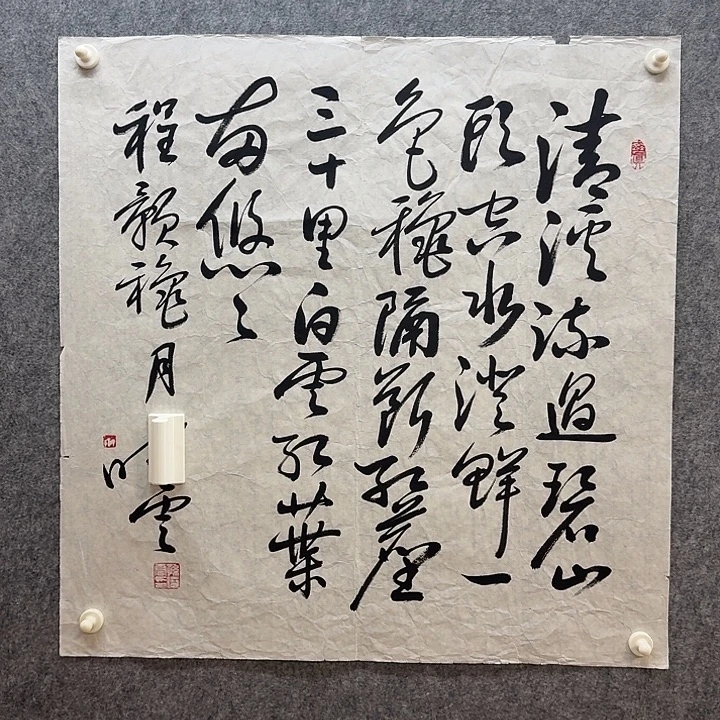 清溪流過碧山
頭空水澄鮮一
色穐隔斷紅塵
三十里白雲紅葉
兩悠々
程顥穐月
雲